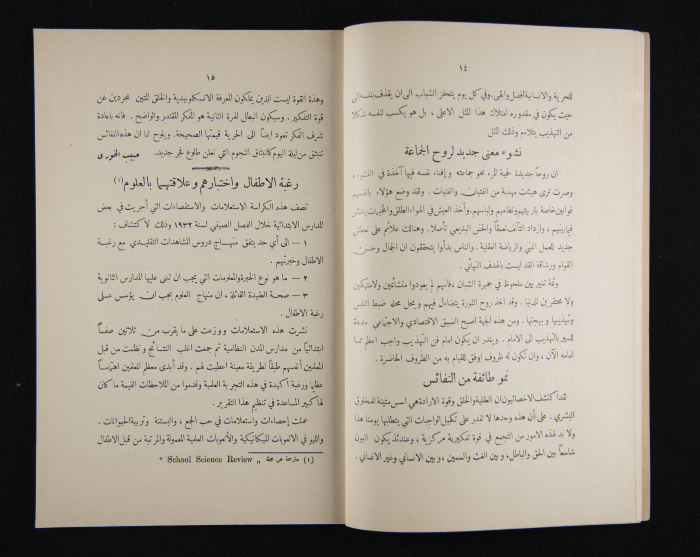 ١٤
للحرية والانسانية افضل وابقى. وفي كل يوم يتحفز الشباب الى ان يقذف بنفسه الى
حيث يكون في مقدوره امتلاك هذا المثل الاعلى ، بل هو يكسب لنفسه شكلا
من التهذيب يتلاءم وذلك المثل
نشوء معنى جديد لروح الجماعة
ان روحاً جديدة لمحبة المرء نحو جماعته وإفناء نفسه فيها آخذة في النشوء.
وصرت ترى هيئات مهذبة من الفتيان والفتيات . ولقد وضع هؤلاء بانفسهم
قوانين خاصة بتربيتهم ونظامهم ولباسهم. وأخذ العيش في الهواء الطلق والمخيمات ينتشر
فيما بينهم ، وازداد التآلف تعمقاً والحس البديعي تأصلا. وهنالك علائم على تعطش
جديد للعمل الفني والرياضة العقلية . والناس بدأوا يتحققون ان الجمال وحسن
القوام ورشاقة القد ليست بالهدف النهائي .
وثمة تغير بين ملحوظ في جمهرة الشبان ، فانهم لم يعودوا متشائمين ولا متهكمين
ولا محتقرين للدنيا . وقد اخذ روح الثورة يتضاءل فيهم ويحل محله ضبط النفس
وتهذيبها وبهجتها . ومن هذه الجهة اصبح الضيق الاقتصادي والاجتماعي مدعاة
للسير بالتهذيب الى الامام . ويندر ان يكون امام فن التهذيب واجب اعظم مما
امامه الآن ، وان تكون له ظروف اوفق للقيام به من الظروف الحاضرة .
نمو طائفة من النفائس
لقد اكتشف الاخصائيون ان العقلية والخلق وقوة الارادة هي اسس متينة للمخلوق
البشري . على أن هذه وحدها لا تقدر على تكميل الواجبات التي يتطلبها يومنا هذا
ولا بد لهذه الامور من التجمع في قوة تفكيرية مركزية ، وعندئذ يكون البون
شاسعاً بين الحق والباطل، وبين الغث والسمين ، وبين الانساني وغير الانساني .
١٥
وهذه القوة ليست للذين يملكون المعرفة الانسكلوبيدية والخلق المتين مجردين عن
قوة التفكير . وسيكون البطل للمرة الثانية هو المفكر المقتدر والواضح . فانه باعادة
شرف الفكر تعود ايضاً الى الحرية قيمتها الصحيحة. ويلوح لنا ان هذه النفائس
تنبثق من ليلة اليوم كانبثاق النجوم التي تعلن طلوع فجر جديد. حبيب الخوري
رغبة الاطفال واختبارهم وعلاقتهما بالعلوم (١)
تصف هذه الكراسة الاستعلامات والاستقصاءات التي أجريت في بعض
المدارس الابتدائية خلال الفصل الصيفي لسنة ١٩٣٢ وذلك لاكتشاف :
١ — الى أي حد يتفق منهاج دروس المشاهدات التقليدي مع رغبة
الاطفال وخبرتهم .
٢ — ما هو نوع الخبرة والمعلومات التي يجب ان تبنى عليها المدارس الثانوية
٣ — صحة العقيدة القائلة ، ان منهاج العلوم يجب ان يؤسس على
رغبة الاطفال .
نشرت هذه الاستعلامات ووزعت على ما يقرب من ثلاثين صفاً
ابتدائياً من مدارس المدن النظامية ثم جمعت اغلب النتائج ونظمت من قبل
المعلمين أنفسهم طبقاً لطريقة معينة اعطيت لهم . وقد أبدى معظم المعلمين اهتماماً
عظيما ورغبة اكيدة في هذه التجربة العلمية وقدموا من الملاحظات القيمة ما كان
لها كبير المساعدة في تنظيم هذا التقرير .
عملت إحصاءات واستعلامات في حب الجمع ، والبستنة وتربية الحيوانات .
واللهو في الالعوبات الميكانيكية والألعوبات العلمية المعمولة والمرتبة من قبل الاطفال
(١) مترجمة عن مجلة „ School Science Review “